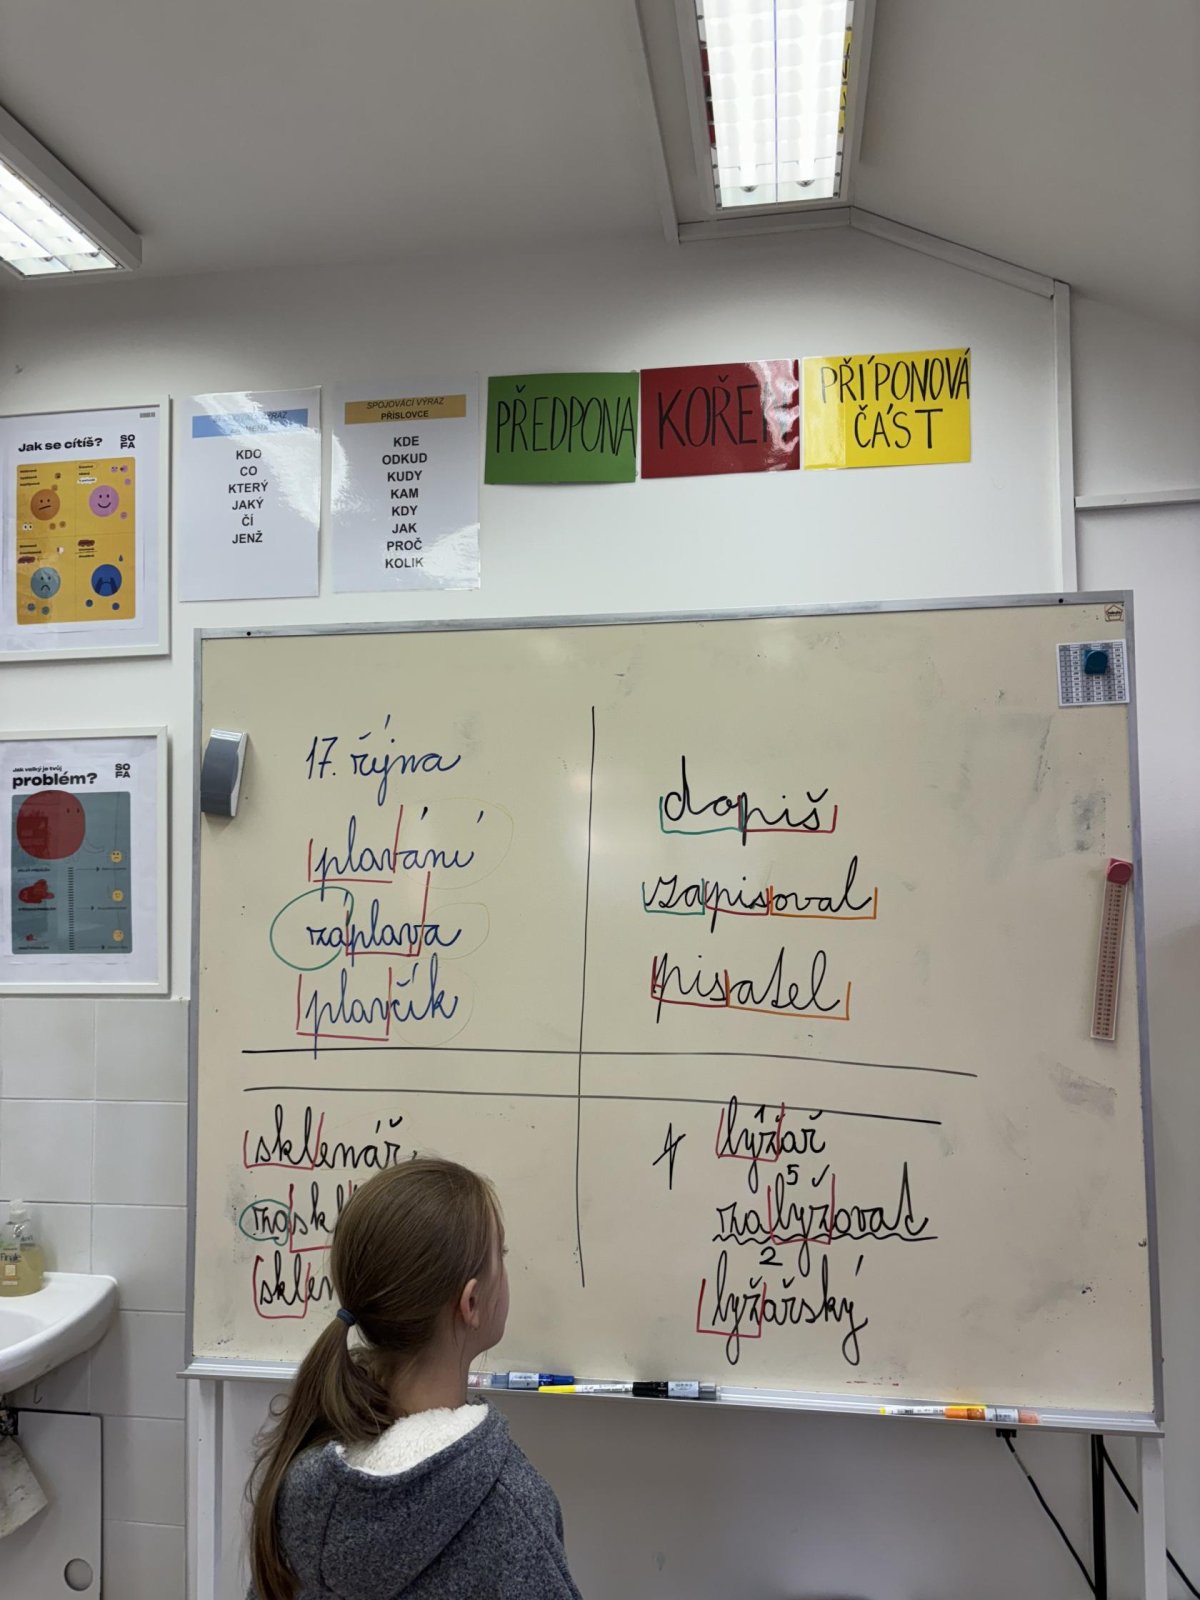 Jak se cítíš?
SO
FA
KDO
CO
KTERÝ
JAKÝ
ČÍ
JENŽ
SPOJOVACÍ VÝRAZ
PŘÍSLOVCE
KDE
ODKUD
KUDY
KAM
KDY
JAK
PROČ
KOLIK
PŘEDPONA
KOŘEN
PŘÍPONOVÁ
ČÁST
Jak velký je tvůj
problém?
SO
FA
17. října
plavání
záplava
plavčík
dopiš
zapisoval
pisatel
sklenář
zaskl
sklen
lyžař
1
5
zalyžovat
2
lyžařský